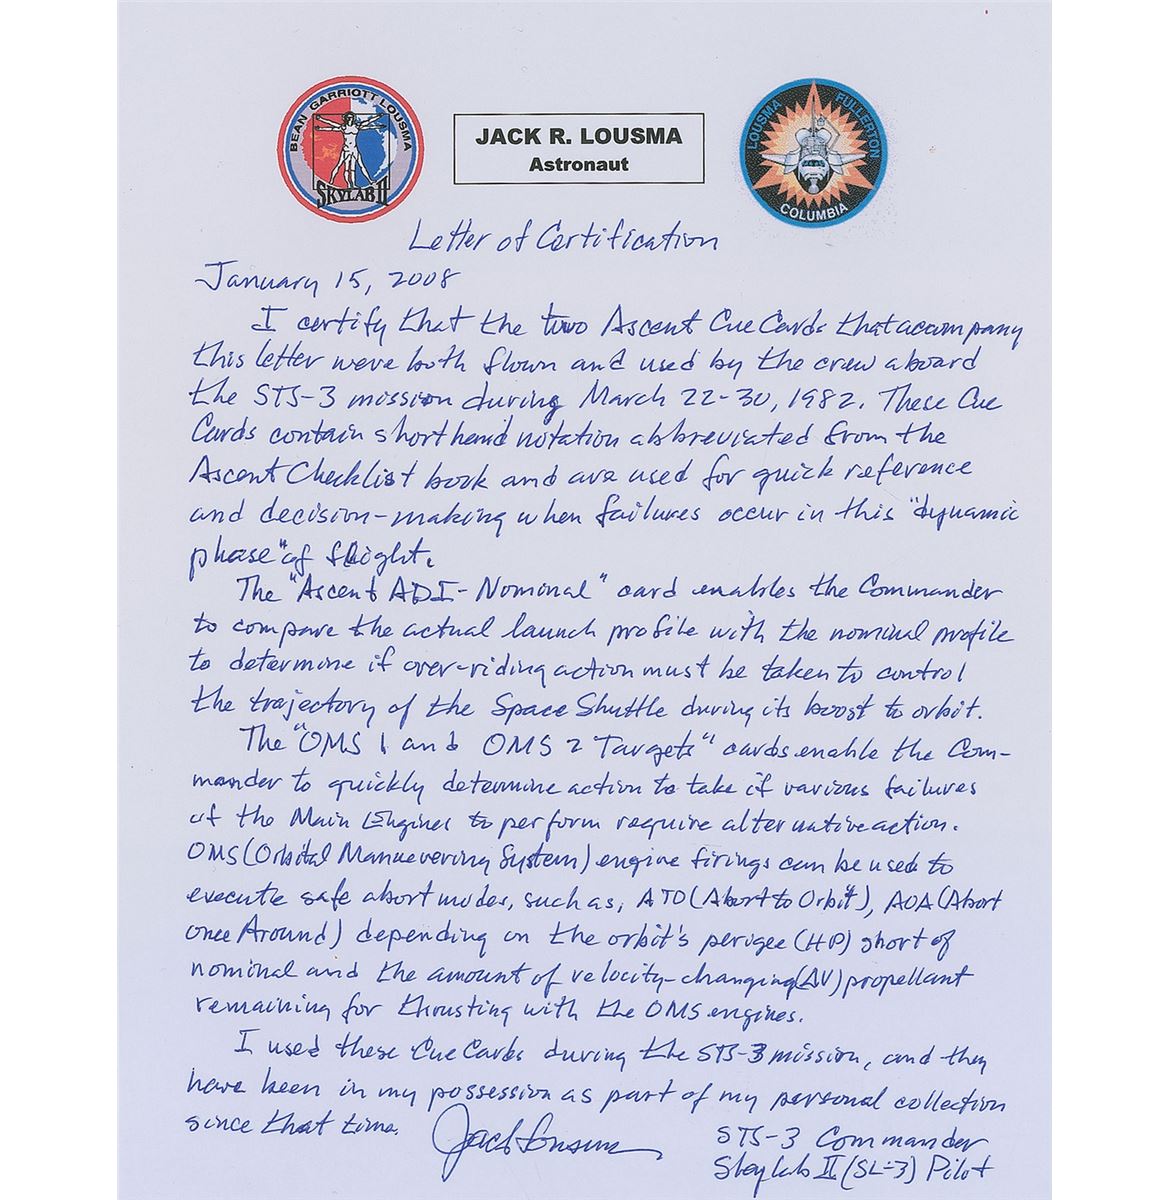 BEAN GARRIOTT LOUSMA
SKYLAB II
JACK R. LOUSMA
Astronaut
LOUSMA FULLERTON
COLUMBIA
Letter of Certification
January 15, 2008
I certify that the two Ascent Cue Cards that accompany
this letter were both flown and used by the crew aboard
the STS-3 mission during March 22-30, 1982. These Cue
Cards contain shorthand notation abbreviated from the
Ascent Checklist book and are used for quick reference
and decision-making when failures occur in this "dynamic
phase" of flight.
The "Ascent ADI-Nominal" card enables the Commander
to compare the actual launch profile with the nominal profile
to determine if over-riding action must be taken to control
the trajectory of the Space Shuttle during its boost to orbit.
The "OMS 1 and OMS 2 Targets" cards enable the Com-
mander to quickly determine action to take if various failures
of the Main Engines to perform require alternative action.
OMS (Orbital Manuevering System) engine firings can be used to
execute safe abort modes, such as, ATO (Abort to Orbit), AOA (Abort
once Around) depending on the orbit's perigee (HP) short of
nominal and the amount of velocity-changing (ΔV) propellant
remaining for thrusting with the OMS engines.
I used these Cue Cards during the STS-3 mission, and they
have been in my possession as part of my personal collection
since that time.
Jack Lousma
STS-3 Commander
Skylab II (SL-3) Pilot